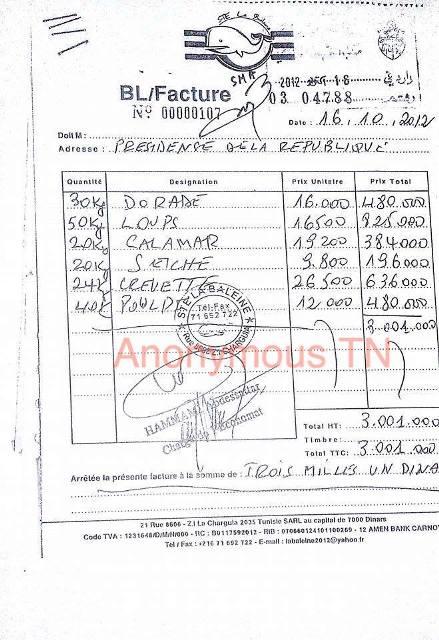 STE La Baleine
SMA
BL/Facture
Nº 00000107
2012 16
03 04788
Date : 16.10.2012
Doit M :
Adresse : PRESIDENSE DE LA REPUBLIQUE
Quantité Designation Prix Unitaire Prix Total
30Kg DORADE 16.000 480.000
50Kg LOUPS 16500 825.000
20Kg CALAMAR 19200 384.000
20Kg SEICHE 9.800 196.000
24K CREVETTE 26500 636.000
40K POULPE 12.000 480.000
STE LA BALEINE
Tel-Fax
71 692 722
3.001.000
Anonymous TN
HAMMAMI Abdessattar
Total HT: 3.001.000
Timbre:
Total TTC: 3.001.000
Arrêtée la présente facture à la somme de : TROIS MILLES UN DINA
21 Rue 8606 - Z.I La Chargula 2035 Tunisie SARL au capital de 7000 Dinars
Code TVA : 1231648/D/M/N/000 - RC : B0117592012 - RIB : 07066012410110026​9 - 12 AMEN BANK CARNOT
Tel / Fax : +216 71 692 722 - E-mail : labaleine2012@yahoo.fr